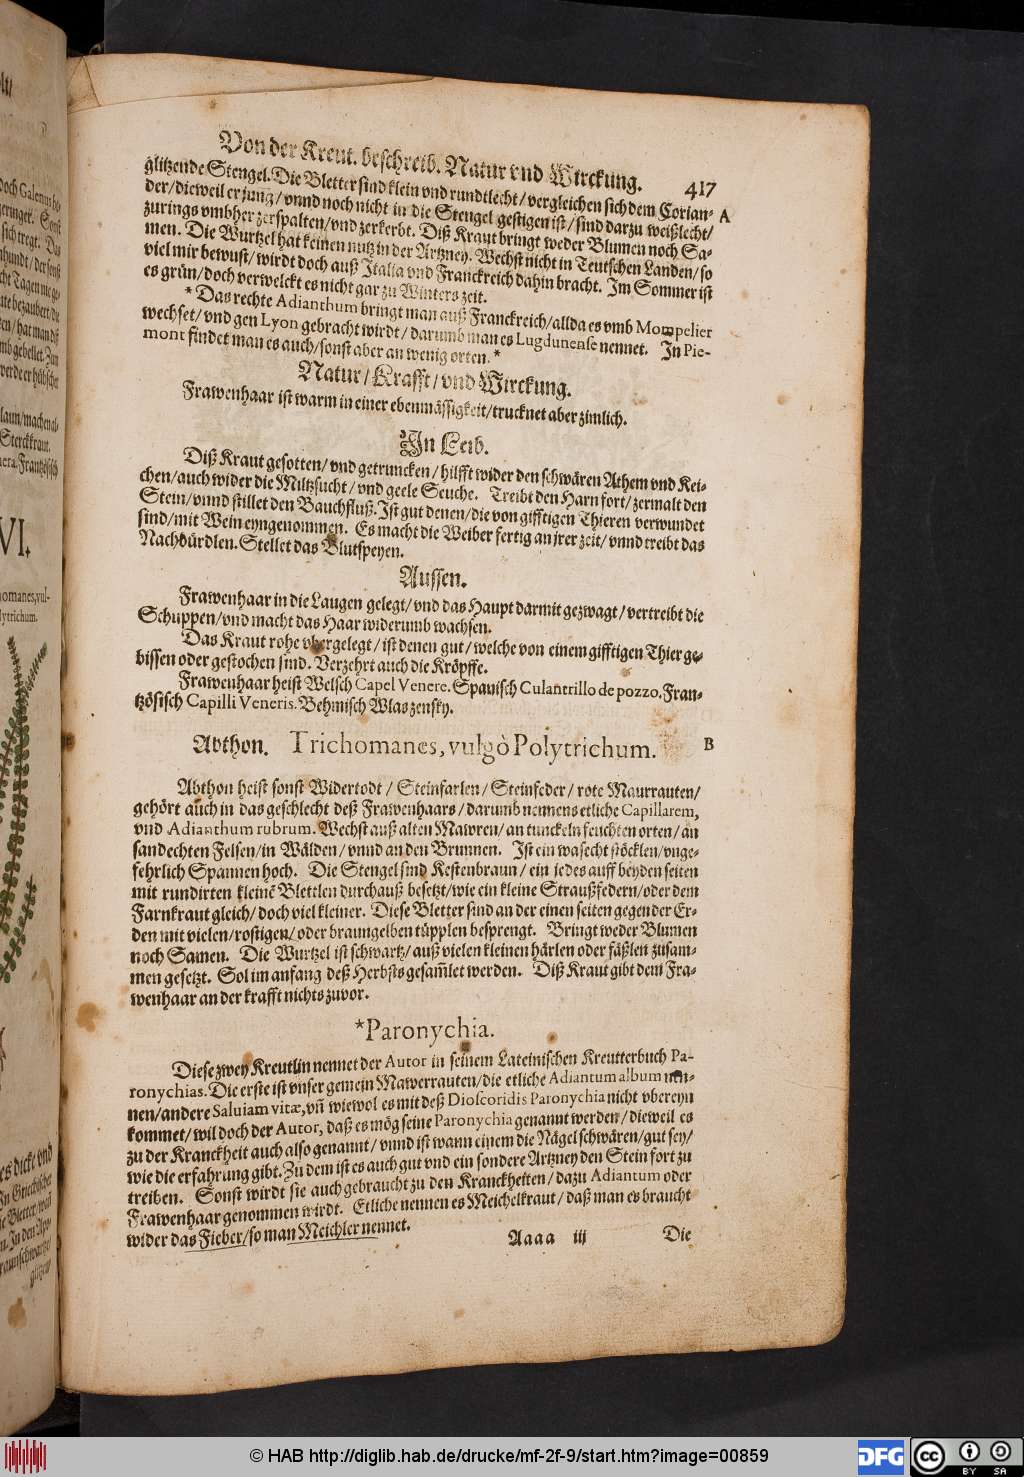 Von der Kreut. beschreib. Natur vnd Wirckung. 417
glitzende Stengel. Die Bletter sind klein vnd rundtlecht / vergleichen sich dem Corian- A
der / dieweil er jung / vnnd noch nicht in die Stengel gestigen ist / sind darzu weißlecht /
zurings vmbher zerspalten / vnd zerkerbt. Diß Kraut bringt weder Blumen noch Sa-
men. Die Wurtzel hat keinen nutz in der Artzney. Wechst nicht in Teutschen Landen / so
viel mir bewust / wirdt doch auß Italia vnd Franckreich dahin bracht. Im Sommer ist
es grün / doch verwelckt es nicht gar zu Winters zeit.
* Das rechte Adianthum bringt man auß Franckreich / allda es vmb Mompelier
wechset / vnd gen Lyon gebracht wirdt / darumb man es Lugdunense nennet. In Pie-
mont findet man es auch / sonst aber an wenig orten. *
Natur / Krafft / vnd Wirckung.
Frawenhaar ist warm in einer ebenmässigkeit / trucknet aber zimlich.
In Leib.
Diß Kraut gesotten / vnd getruncken / hilfft wider den schwären Athem vnd Kei-
chen / auch wider die Miltzsucht / vnd geele Seuche. Treibt den Harn fort / zermalt den
Stein / vnnd stillet den Bauchfluß. Ist gut denen / die von gifftigen Thieren verwundet
sind / mit Wein eyngenommen. Es macht die Weiber fertig an jrer zeit / vnnd treibt das
Nachbürdlen. Stellet das Blutspeyen.
Aussen.
Frawenhaar in die Laugen gelegt / vnd das Haupt darmit gezwagt / vertreibt die
Schuppen / vnd macht das Haar widerumb wachsen.
Das Kraut rohe vbergelegt / ist denen gut / welche von einem gifftigen Thier ge-
bissen oder gestochen sind. Verzehrt auch die Kröpffe.
Frawenhaar heist Welsch Capel Venere. Spanisch Culantrillo de pozzo. Fran-
tzösisch Capilli Veneris. Behmisch Wlaszensky.
Abthon. Trichomanes, vulgò Polytrichum. B
Abthon heist sonst Widertodt / Steinfarlen / Steinfeder / rote Maurrauten /
gehört auch in das geschlecht deß Frawenhaars / darumb nennens etliche Capillarem,
vnd Adianthum rubrum. Wechst auß alten Mawren / an tunckeln feuchten orten / an
sandechten Felsen / in Wälden / vnnd an den Brunnen. Ist ein wasecht stöcklen / vnge-
fehrlich Spannen hoch. Die Stengel sind Kestenbraun / ein jedes auff beyden seiten
mit rundirten kleinē Blettlen durchauß besetzt / wie ein kleine Straußfedern / oder dem
Farnkraut gleich / doch viel kleiner. Diese Bletter sind an der einen seiten gegen der Er-
den mit vielen / rostigen / oder braungelben tüpplen besprengt. Bringt weder Blumen
noch Samen. Die Wurtzel ist schwartz / auß vielen kleinen härlen oder fäßlen zusam-
men gesetzt. Sol im anfang deß Herbsts gesam̄let werden. Diß Kraut gibt dem Fra-
wenhaar an der krafft nichts zuvor.
*Paronychia.
Diese zwey Kreutlin nennet der Autor in seinem Lateinischen Kreutterbuch Pa-
ronychias. Die erste ist vnser gemein Mawerrauten / die etliche Adiantum album nen-
nen / andere Saluiam vitæ, vñ wiewol es mit deß Dioscoridis Paronychia nicht vbereyn
kommet / wil doch der Autor, daß es mög seine Paronychia genannt werden / dieweil es
zu der Kranckheit auch also genannt / vnnd ist wann einem die Nägel schwären / gut sey /
wie die erfahrung gibt. Zu dem ist es auch gut vnd ein sondere Artzney den Stein fort zu
treiben. Sonst wirdt sie auch gebraucht zu den Kranckheiten / dazu Adiantum oder
Frawenhaar genommen wirdt. Etliche nennen es Meichelkraut / daß man es braucht
wider das Fieber / so man Meichler nennet.
Aaaa iij Die
© HAB http://diglib.hab.de/drucke/mf-2f-9/start.htm?image=00859
DFG
cc BY SA